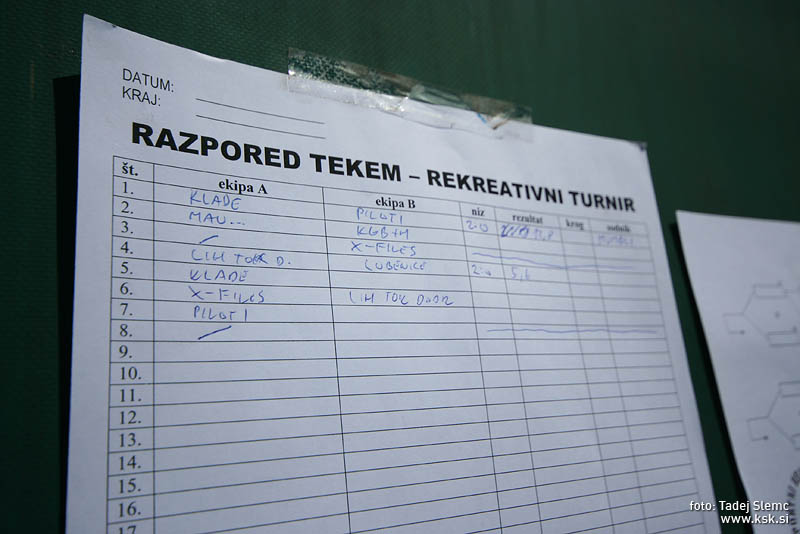 DATUM:
KRAJ:
RAZPORED TEKEM – REKREATIVNI TURNIR
št. ekipa A ekipa B niz rezultat krog sodnik
1. KLADE PILOTI
2. MAU... KGB+H 2:0
3. X-FILES
4. LIH TOK D. LUBENICE 2:0
5. KLADE
6. X-FILES LIH TOK DOOR
7. PILOTI
8.
9.
10.
11.
12.
13.
14.
15.
16.
17.
foto: Tadej Slemc
www.ksk.si